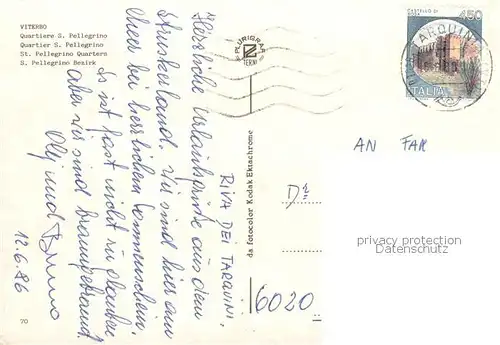 VITERBO
Quartiere S. Pellegrino
Quartier S. Pellegrino
St. Pellegrino Quarters
S. Pellegrino Bezirk
RIVA DEI TARQUINI,
Herzliche Urlaubsgrüße aus dem
Etruskerland. Wir sind hier am
Meer bei herrlichem Sonnenschein.
Es ist fast nicht zu glauben
aber wir sind braungebrannt.
und Bruno
12.6.86
70
PLURIGRAF
TERNI
da fotocolor Kodak Ektachrome
CASTELLO DI
450
ITALIA
TARQUINIA
AN FAM
6020
privacy protection
Datenschutz